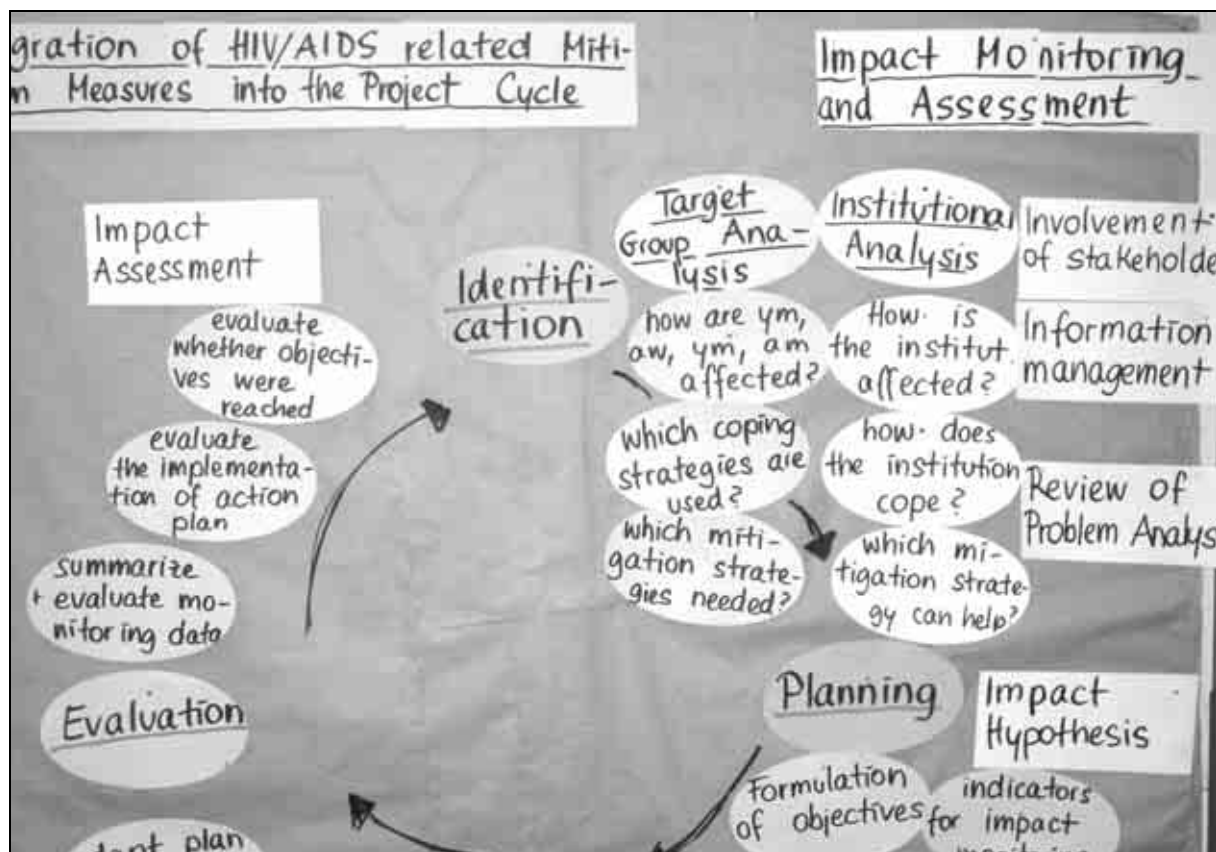 gration of HIV/AIDS related Miti-
n Measures into the Project Cycle
Impact Monitoring
and Assessment
Impact
Assessment
evaluate
whether objecti-
ves were
reached
evaluate
the implementa-
tion of action
plan
summarize
+ evaluate mo-
nitoring data
Evaluation
plan
Identifi-
cation
Target
Group Ana-
lysis
how are ym,
aw, ym, am
affected?
which coping
strategies are
used?
which miti-
gation strate-
gies needed?
Institutional
Analysis
How is
the institut.
affected?
how does
the institution
cope?
which mi-
tigation strate-
gy can help?
Involvement
of stakeholde
Information
management
Review of
Problem Analys
Planning
Impact
Hypothesis
Formulation
of objectives
indicators
for impact